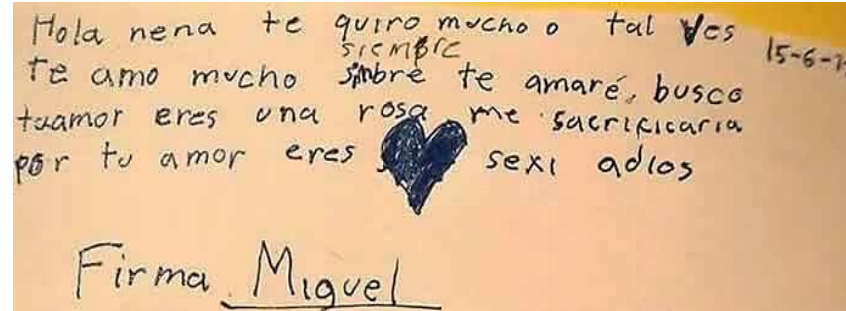 Hola nena te quiro mucho o tal Ves
15-6-1
siempre
te amo mucho simbre te amaré, busco
tuamor eres una rosa me sacrificaria
por tu amor eres sexi adios
Firma Miguel